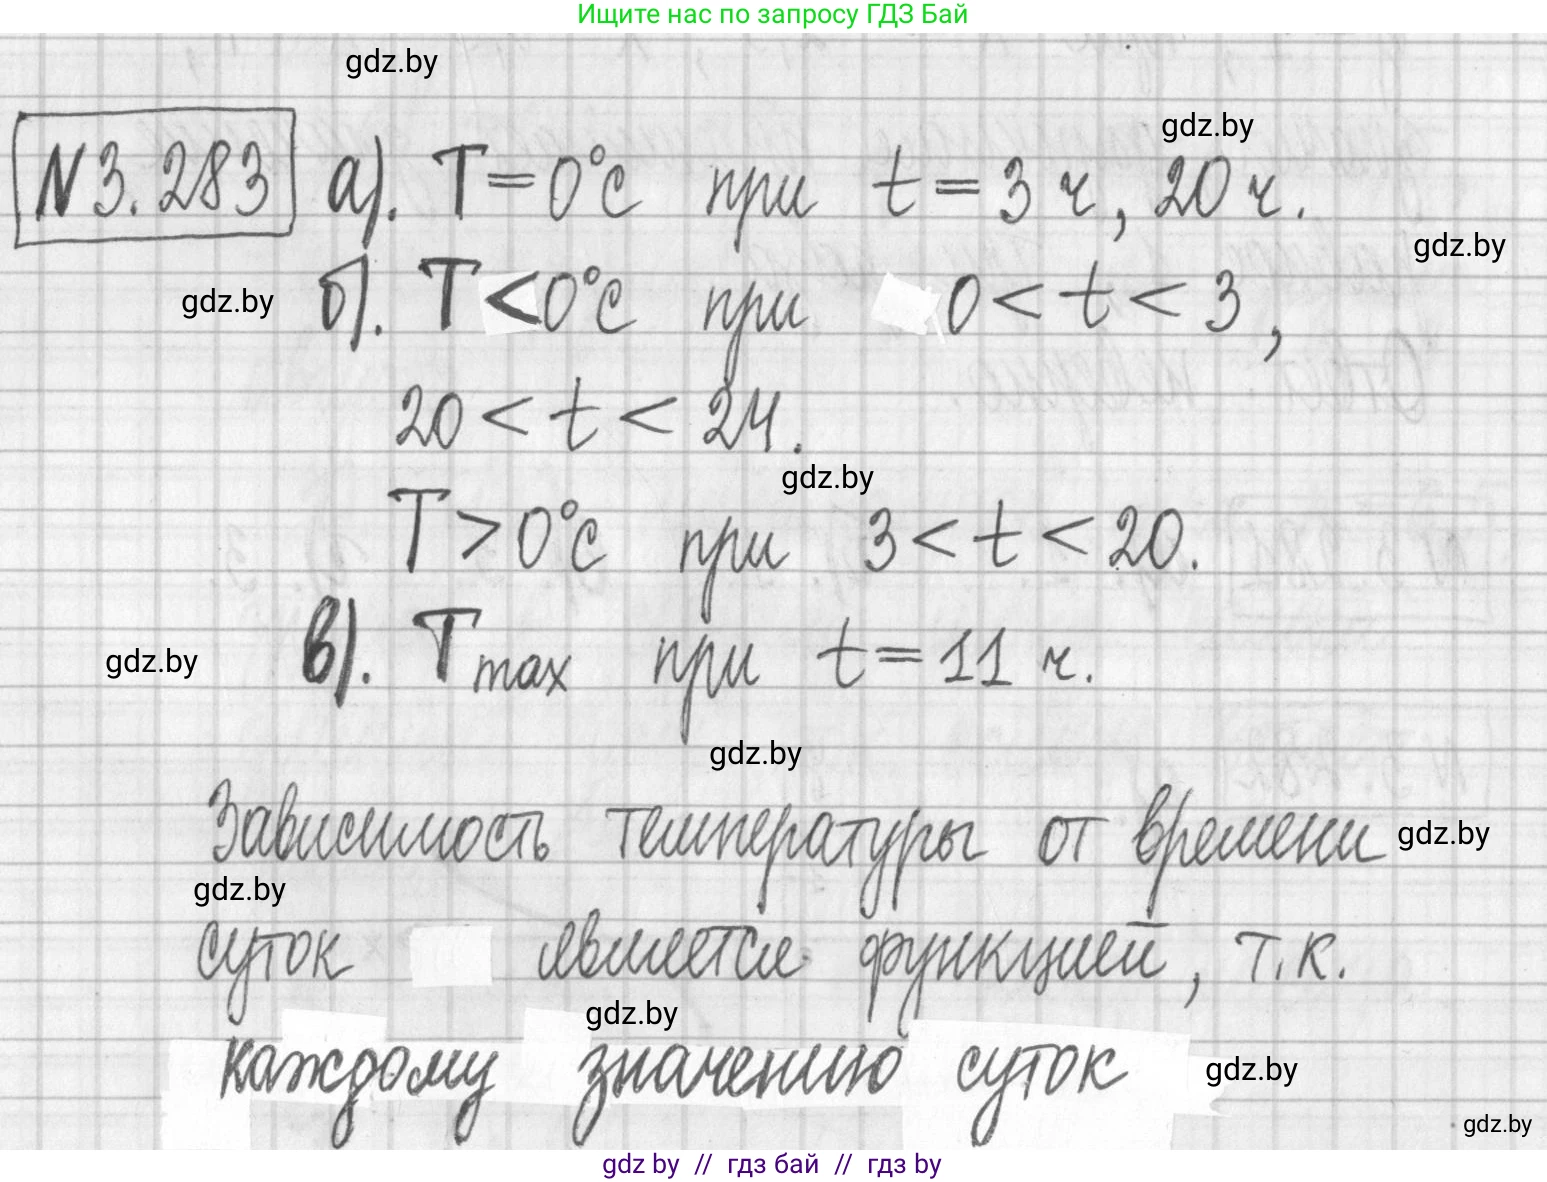 Ищите нас по запросу ГДЗ Бай
gdz.by
gdz.by
N3.283 а). T=0°C при t=3 ч, 20 ч.
gdz.by
gdz.by
б). T<0°C при 0<t<3,
20<t<24.
gdz.by
T>0°C при 3<t<20.
gdz.by
в). Tmax при t=11 ч.
gdz.by
Зависимость температуры от времени
gdz.by
gdz.by
суток является функцией, т.к.
gdz.by
каждому значению суток
gdz.by
gdz.by
gdz by // гдз бай // гдз by